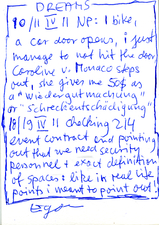 DREAMS
10/11 IV 11 NP: I bike,
a car door opens, i just
manage to not hit the door
Caroline v. Monaco steps
out, she gives me 50€ as
a "Wiedergutmachung"
or "Schreckentschädigung"
18/19 IV 11 checking 2/4
event contract and pointing
out that we need security
personnel + exact definition
of spaces: like in real life
points i meant to point out!